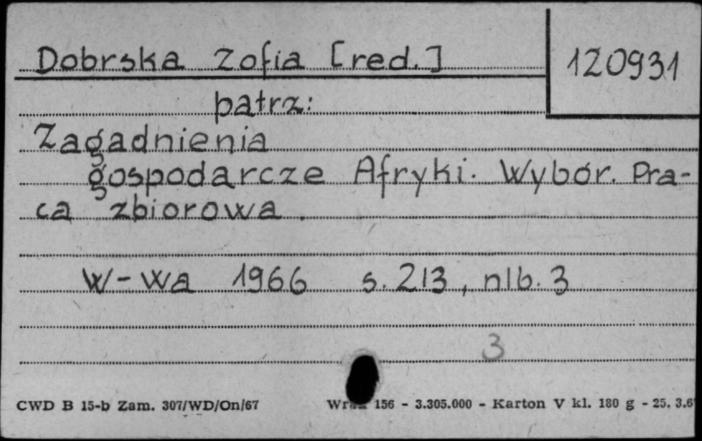 Dobrska Zofia [red.]
120931
patrz:
Zagadnienia
gospodarcze Afryki. Wybór. Pra-
ca zbiorowa.
W-wa 1966 s. 213, nlb. 3
3
CWD B 15-b Zam. 307/WD/On/67
156 - 3.305.000 - Karton V kl. 180 g - 25. 3.6